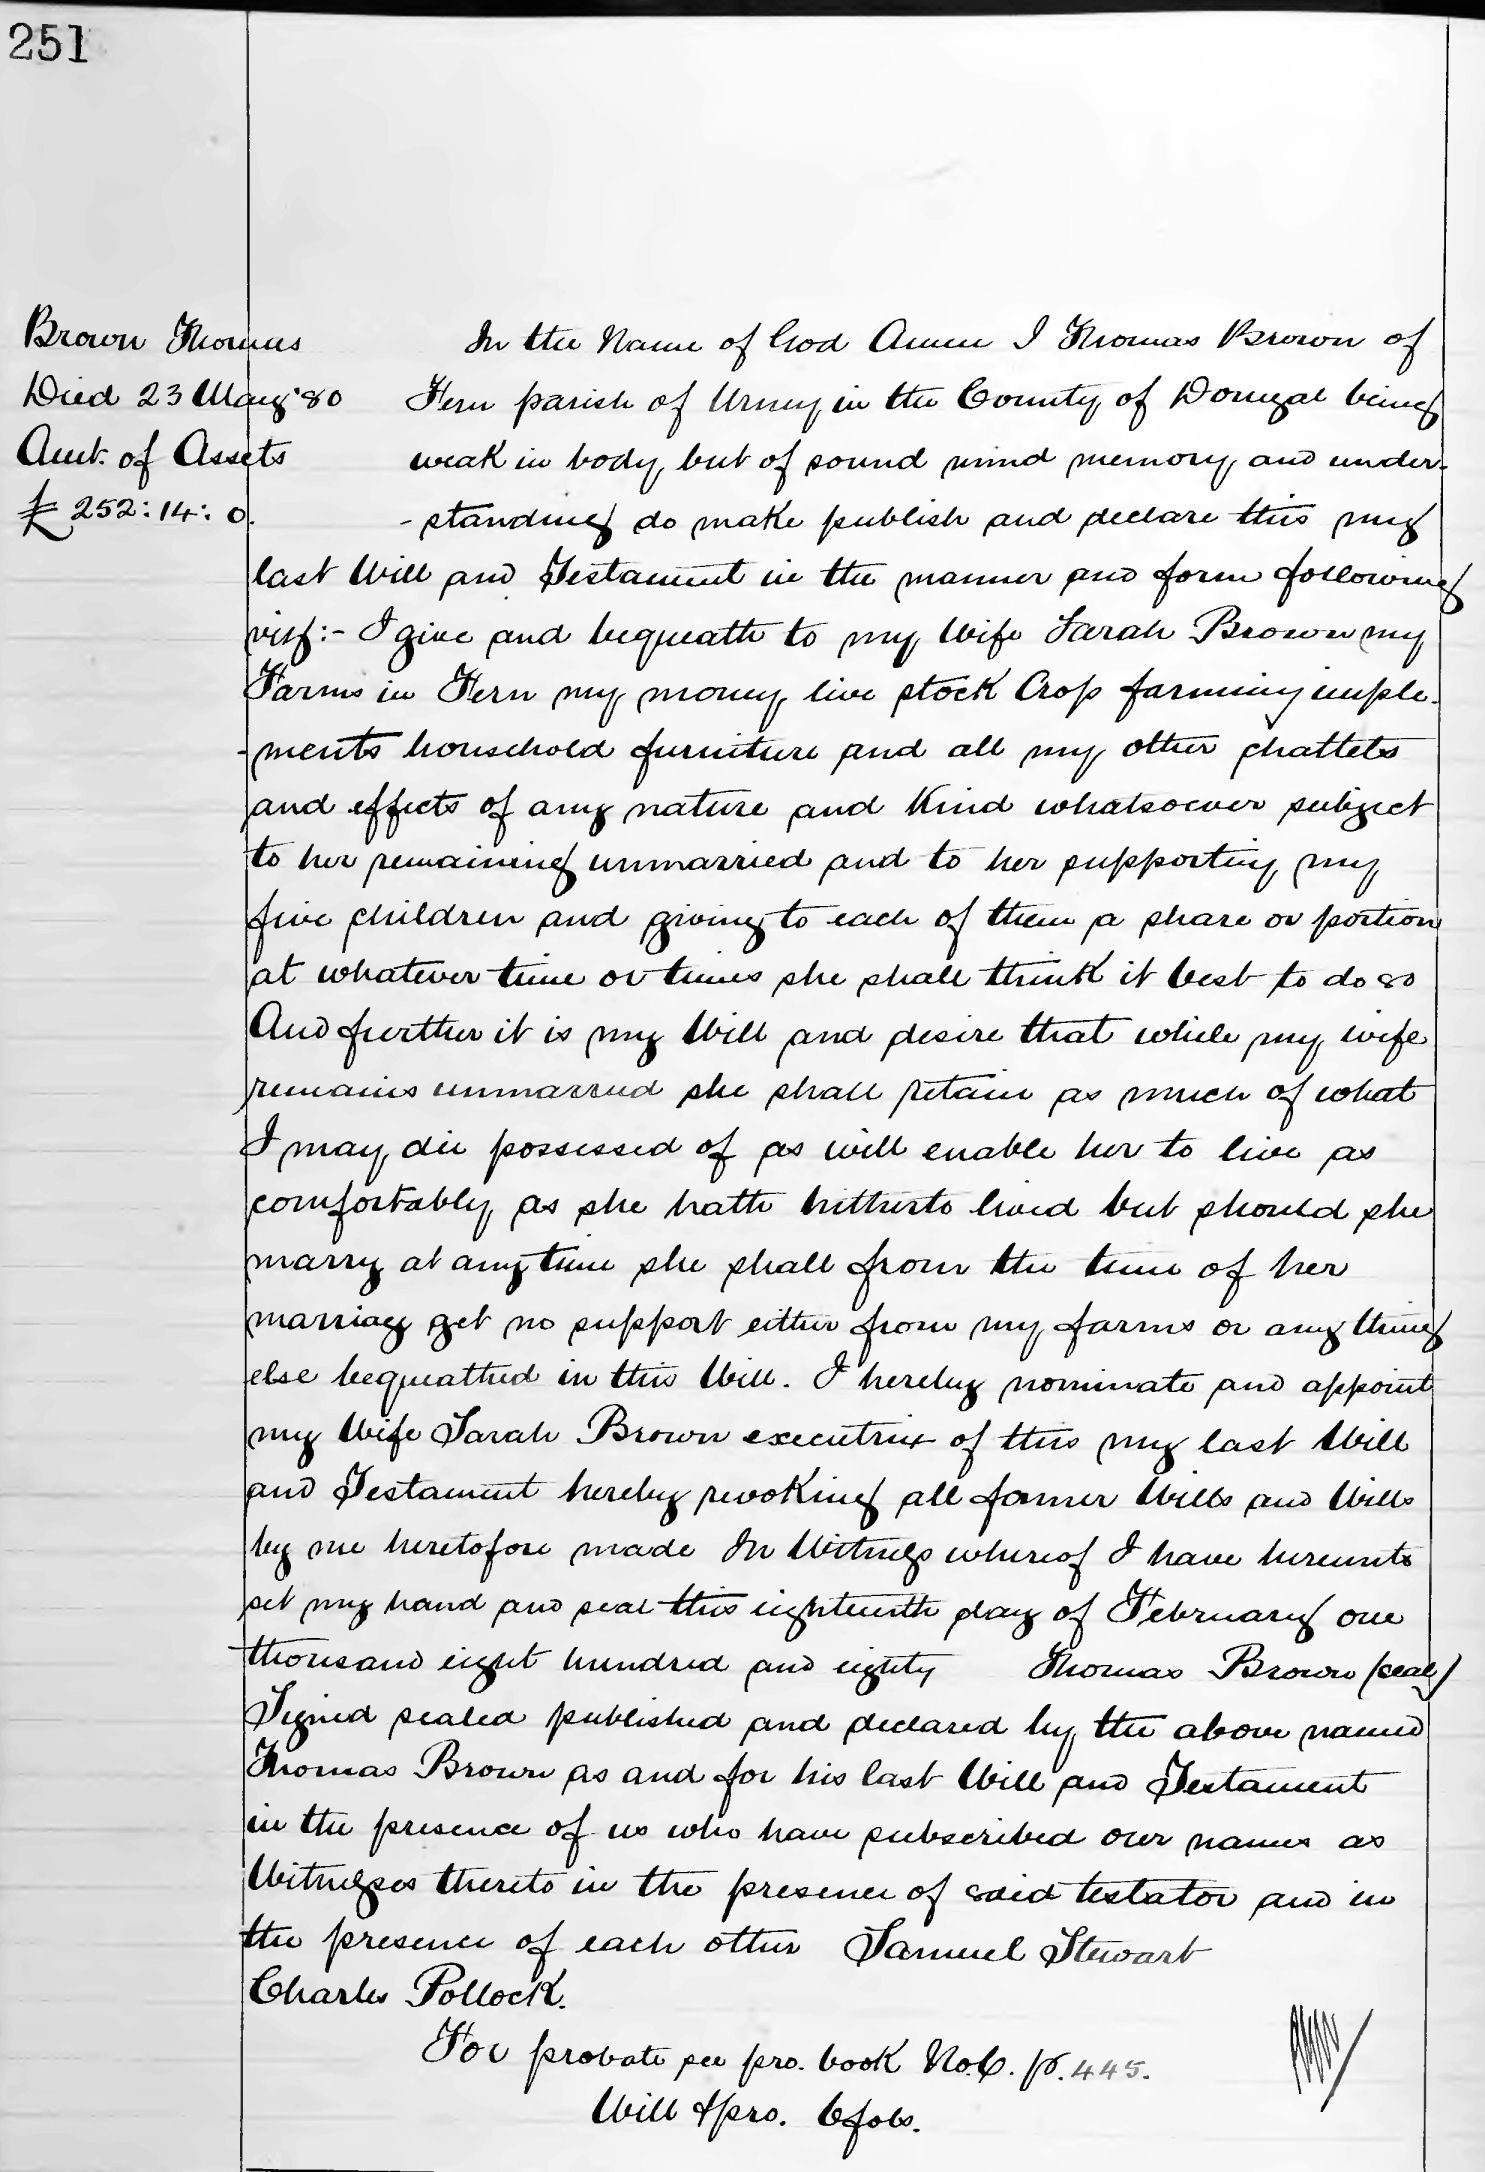 251
Brown Thomas
Died 23 May '80
Amt. of Assets
£252:14:0.
In the Name of God Amen I Thomas Brown of
Fern parish of Urney in the County of Donegal being
weak in body, but of sound mind memory and under-
-standing do make publish and declare this my
last Will and Testament in the manner and form following
viz:- I give and bequeath to my Wife Sarah Brown my
Farms in Fern my money, live stock Crop farming imple-
-ments household furniture and all my other chattels
and effects of any nature and Kind whatsoever subject
to her remaining unmarried and to her supporting my
five children and giving to each of them a share or portion
at whatever time or times she shall think it best to do so
And further it is my Will and desire that while my wife
remains unmarried she shall retain as much of what
I may die possessed of as will enable her to live as
comfortably as she hath hitherto lived but should she
marry at any time she shall from the time of her
marriage get no support either from my farms or any thing
else bequeathed in this Will. I hereby nominate and appoint
my Wife Sarah Brown executrix of this my last Will
and Testament hereby revoking all former Wills and Wills
by me heretofore made In Witness whereof I have hereunto
set my hand and seal this eighteenth day of February one
thousand eight hundred and eighty Thomas Brown (seal)
Signed sealed published and declared by the above named
Thomas Brown as and for his last Will and Testament
in the presence of us who have subscribed our names as
Witnesses thereto in the presence of said testator and in
the presence of each other Samuel Stewart
Charles Pollock.
For probate see pro. book No. 6. p. 445.
Will & pro. 6 fols.